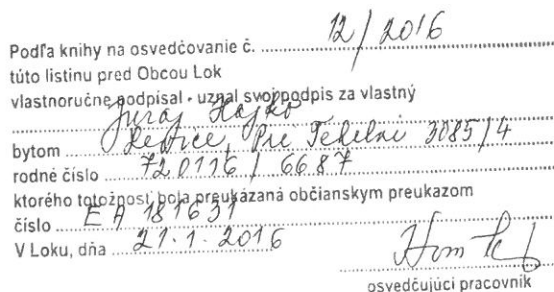 Podľa knihy na osvedčovanie č. 12/2016
túto listinu pred Obcou Lok
vlastnoručne podpísal - uznal svoj podpis za vlastný
Juraj Hajko
bytom Levice, Pri Tehelni 3085/4
rodné číslo 720116 / 6687
ktorého totožnosť bola preukázaná občianskym preukazom
číslo EA 181631
V Loku, dňa 21.1.2016
osvedčujúci pracovník